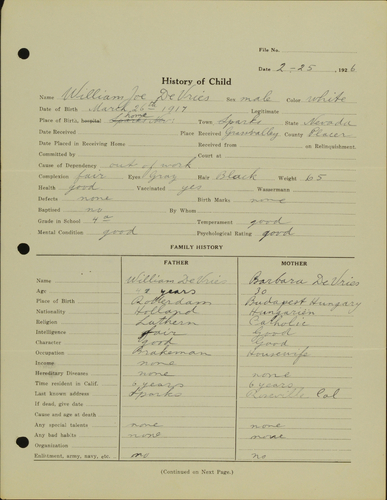 File No.
Date 2-25, 1926
History of Child
Name William Joe DeVries Sex male Color white
Date of Birth March 26th 1917 Legitimate
Place of Birth, hospital home Town Sparks State Nevada
Date Received Place Received Grassvalley County Placer
Date Placed in Receiving Home Received from on Relinquishment.
Committed by Court at
Cause of Dependency out of work
Complexion fair Eyes Gray Hair Black Weight 65
Health good Vaccinated yes Wassermann
Defects none Birth Marks none
Baptised no By Whom
Grade in School 4th Temperament good
Mental Condition good Psychological Rating good
FAMILY HISTORY
FATHER MOTHER
Name William DeVries Barbara DeVries
Age years 30
Place of Birth Rotterdam Budapest Hungary
Nationality Holland Hungarien
Religion Luthern Catholic
Intelligence fair Good
Character good Good
Occupation Brakeman Housewife
Income none
Hereditary Diseases none none
Time resident in Calif. years 6 years
Last known address Sparks Roseville Cal
If dead, give date
Cause and age at death
Any special talents none none
Any bad habits none none
Organization
Enlistment, army, navy, etc. no no
(Continued on Next Page.)